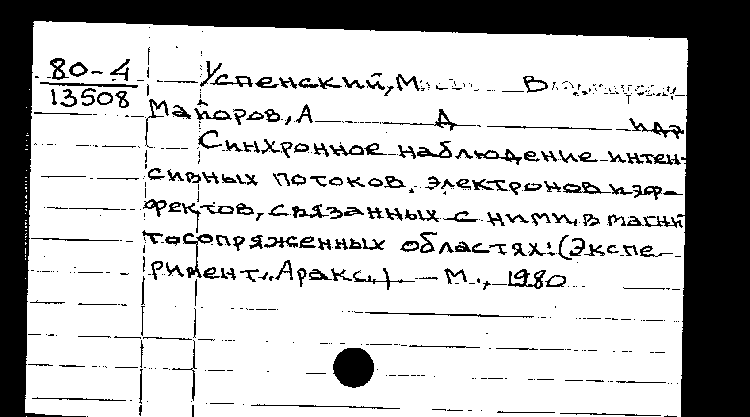 80-4
13508
Успенский, М В
Майоров, А Д и др
Синхронное наблюдение интен-
сивных потоков электронов и эф-
фектов, связанных с ними, в магни
тосопряженных областях: (Экспе-
римент „Аракс„). - М., 1980